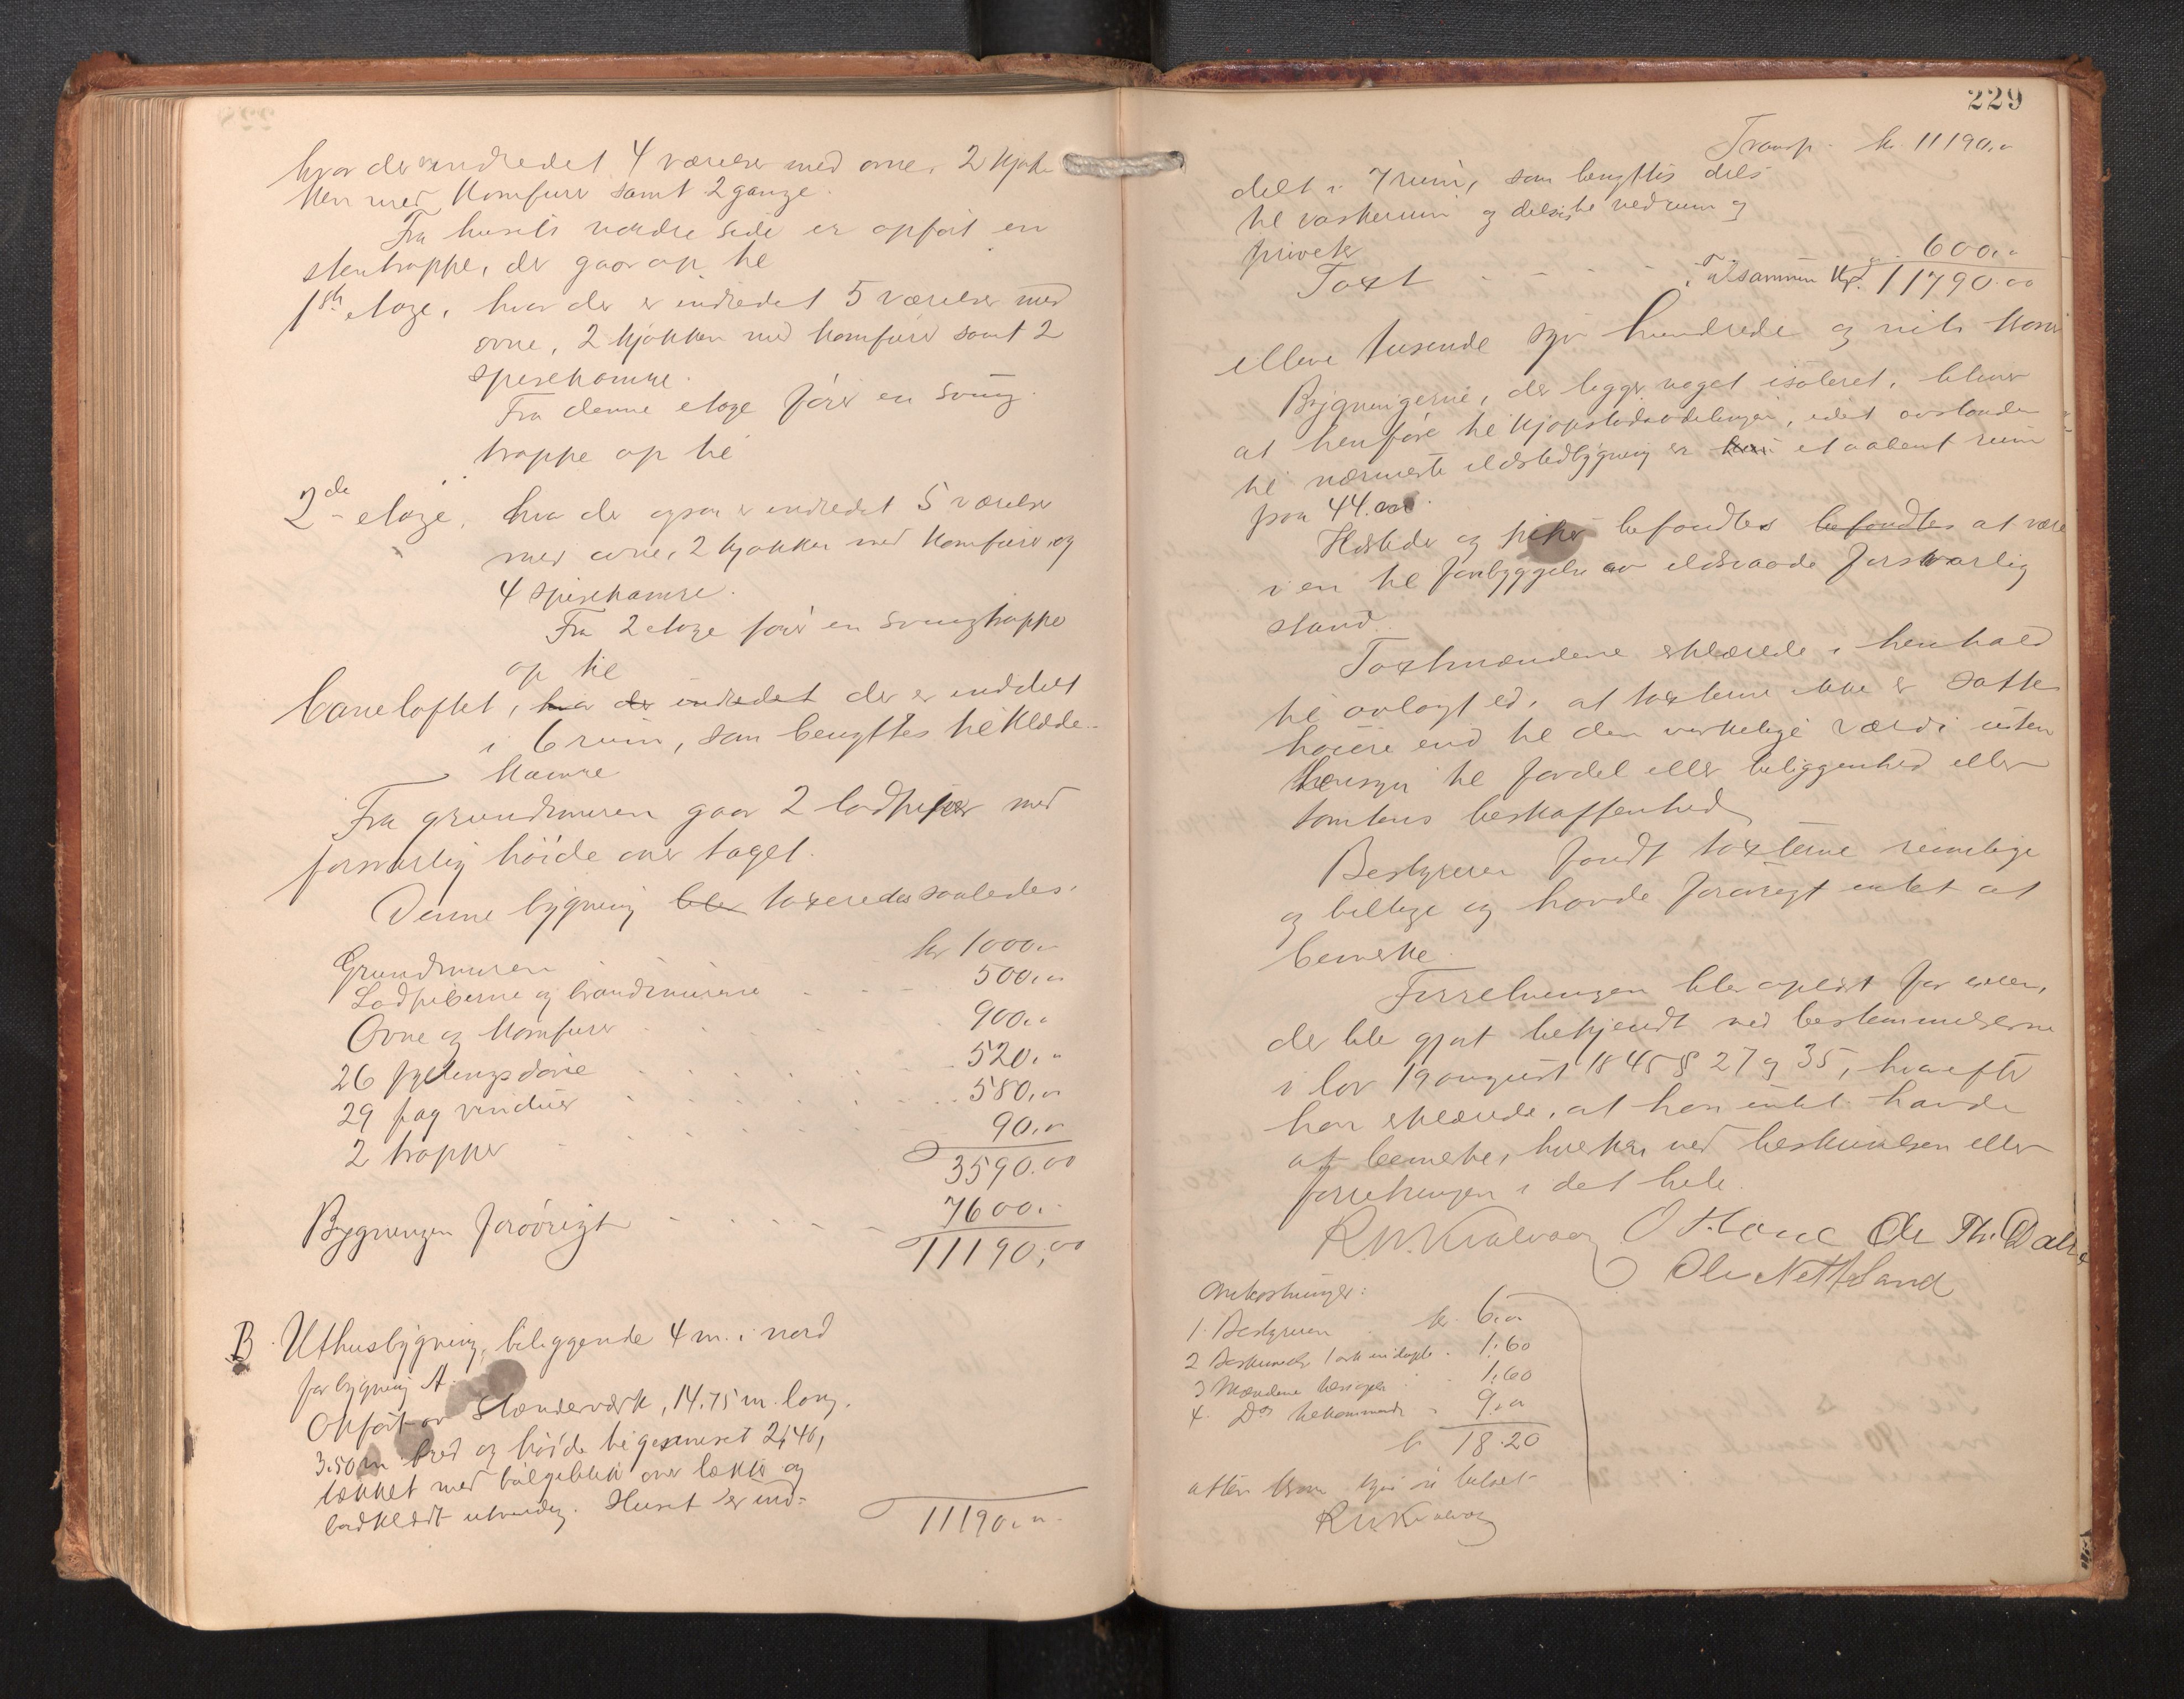 hvor der er indredet 4 værelser med ovne, 2 kjøk-
ken med komfurer samt 2 gange.
Fra husets nordre side er opført en
stentrappe, der gaar op til
1ste etage, hvor der er indredet 5 værelser med
ovne, 2 kjøkken med komfurer samt 2
spisekamre.
Fra denne etage fører en sving-
trappe op til
2den etage, hvor der ogsaa er indredet 5 værelser
med ovne, 2 kjøkken med komfurer og
4 spisekamre.
Fra 2 etage fører en svingtrappe
op til
Taneloftet, hvor der indredet der er inddelt
i 6 rum, som benyttes til klæde-
kamre
Fra grundmuren gaar 2 lodpiper med
forsvarlig høide over taget.
Denne bygning blev taxeredes saaledes:
Grundmuren kr 1000.„
Lodpiberne og brandmurene - - - 500.„
Ovne og komfurer . . . . 900.„
26 fyldingsdøre . . . . 520.„
29 fag vinduer . . . . 580.„
2 trapper . . . . 90.„
3590.00
Bygningen forøvrigt - - - - 7600.„
11190.00
B. Uthusbygning, beliggende 4 m. i nord
for bygning A.
Opført av stænderværk, 14.75 m. lang,
3.50 m bred og høide til gesimset 2,40,
tækket med bølgeblikk over lækter og
bordklædt utvendig. Huset er ind-
11190.„
229
Transp. kr. 11190.„
delt i 7 rum, som benyttes dels
til vaskerum og dels til vedrum og
priveter
Taxt - - - - 600.„
Tilsammen kr. 11790.00
elleve tusende syv hundrede og nitti kroner
Bygningerne, der ligger noget isoleret, bliver
at henføre til kjøpstadavdelingen, idet avstanden
til nærmeste ildstedbygning er kun et aabent rum
paa 44 m.
Ildsteder og piper befandtes befandtes at være
i en til forebyggelse av ildsvaade forsvarlig
stand.
Taxtmændene erklærede i henhold
til avlagt ed, at taxterne ikke er satte
høiere end til den virkelige værdi uten
hensyn til fordel eller beliggenhed eller
tomtens beskaffenhed
Bestyreren fandt taxterne rimelige
og billige og havde forøvrigt intet at
bemerke.
Forretningen blev oplæst for eieren,
der ble gjort bekjendt med bestemmelserne
i lov 19 august 1845 § 27 og 35, hvorefter
han erklærede, at han intet havde
at bemerke, hverken ved beskrivelsen eller
forretningen i det hele.
O Hane Ole Th. Dale
Ole Nettland
Omkostninger:
1. Bestyreren kr. 6.„
2 Beskrivelse 1 ark indført . 1.60
3 Mændene . . 1.60
4. Do tilkommende „ 9.„
kr 18.20
atten kroner tyve øre betalt